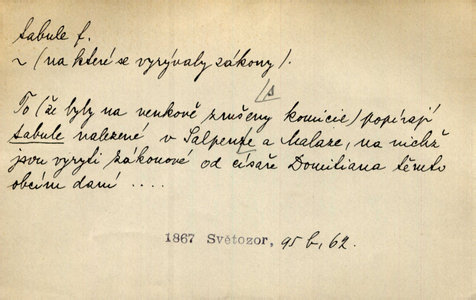 tabule f.
~ (na které se vyrývaly zákony).
To (že byly na venkově zrušeny komicie) popírají
tabule nalezené v Salpenze a Malaze, na nichž
jsou vyryti zákonové od císaře Domitiana těmto
obcím daní ....
1867 Světozor, 95 b, 62.